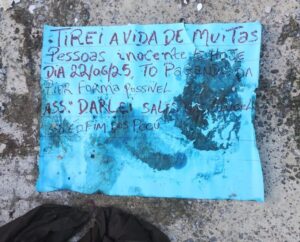 TIREI A VIDA DE MUITAS
Pessoas inocente E HOJE
DIA 22/06/25 TO PAGANDO DA
PIER FORMA POSSIVEL
ASS: DARLEI SALES
FIM DOS